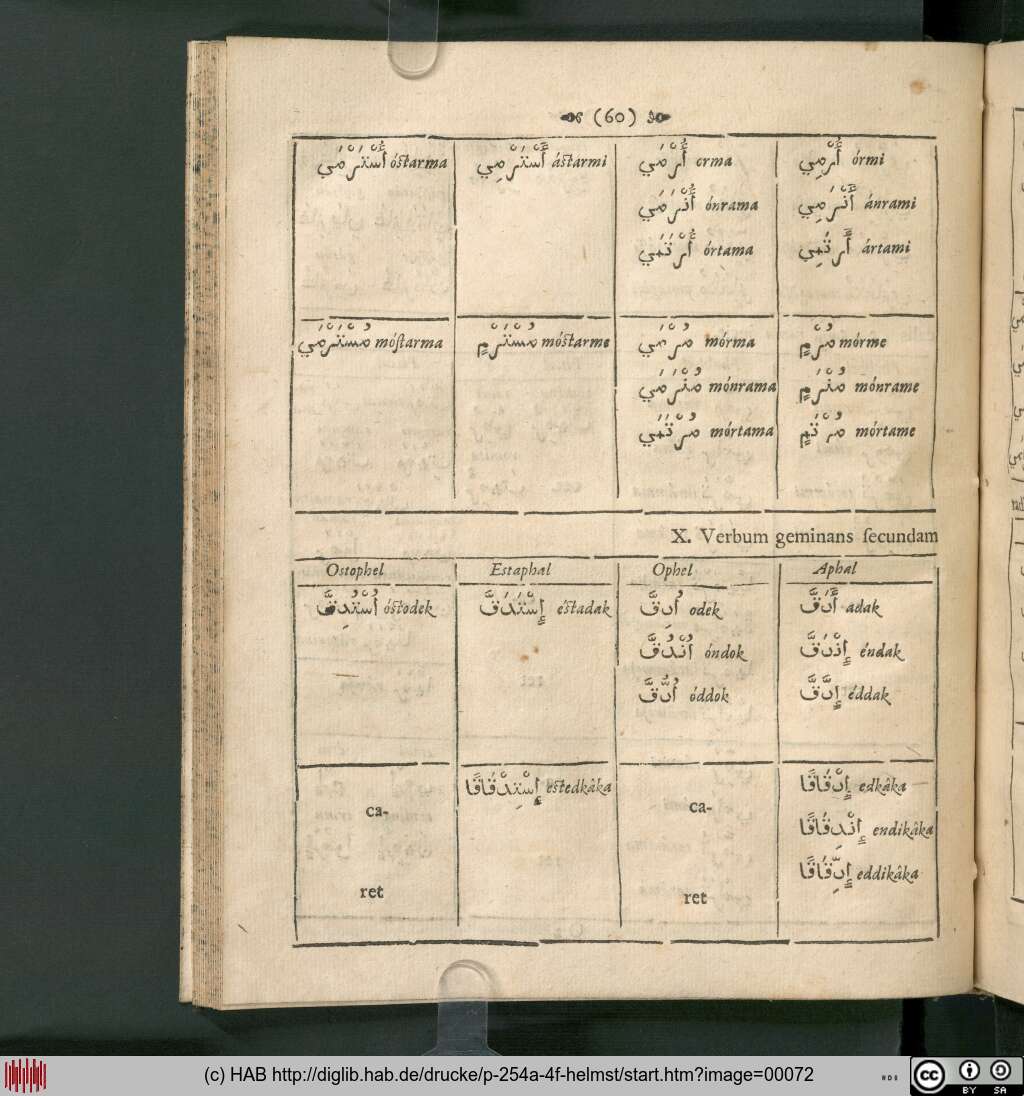 (60)
أُسْتَرْمَي óstarma أَسْتَرْمِي ástarmi أُرْمَي orma أُرْمِي órmi
أُنْرَمَي ónrama أَنْرَمِي ánrami
أُرْتَمَي órtama أَرْتَمِي ártami
مُسْتَرْمَي móstarma مُسْتَرْمٍ móstarme مُرْمَي mórma مُرْمٍ mórme
مُنْرَمَي mónrama مُنْرَمٍ mónrame
مُرْتَمَي mórtama مُرْتَمٍ mórtame
X. Verbum geminans ſecundam
Ostophel Estaphal Ophel Aphal
أُسْتُدِقَّ óstodek إِسْتَدَقَّ éstadak أُدِقَّ odek أَدَقَّ adak
أُنْدُقَّ óndok إِنْدَقَّ éndak
أُدُّقَّ óddok إِدَّقَّ éddak
ca- إِسْتِدْقَاقًا estedkâka ca- إِدْقَاقًا edkâka
إِنْدِقَاقًا endikâka
ret ret إِدِّقَاقًا eddikâka
(c) HAB http://diglib.hab.de/drucke/p-254a-4f-helmst/start.htm?image=00072
HAB
cc BY SA